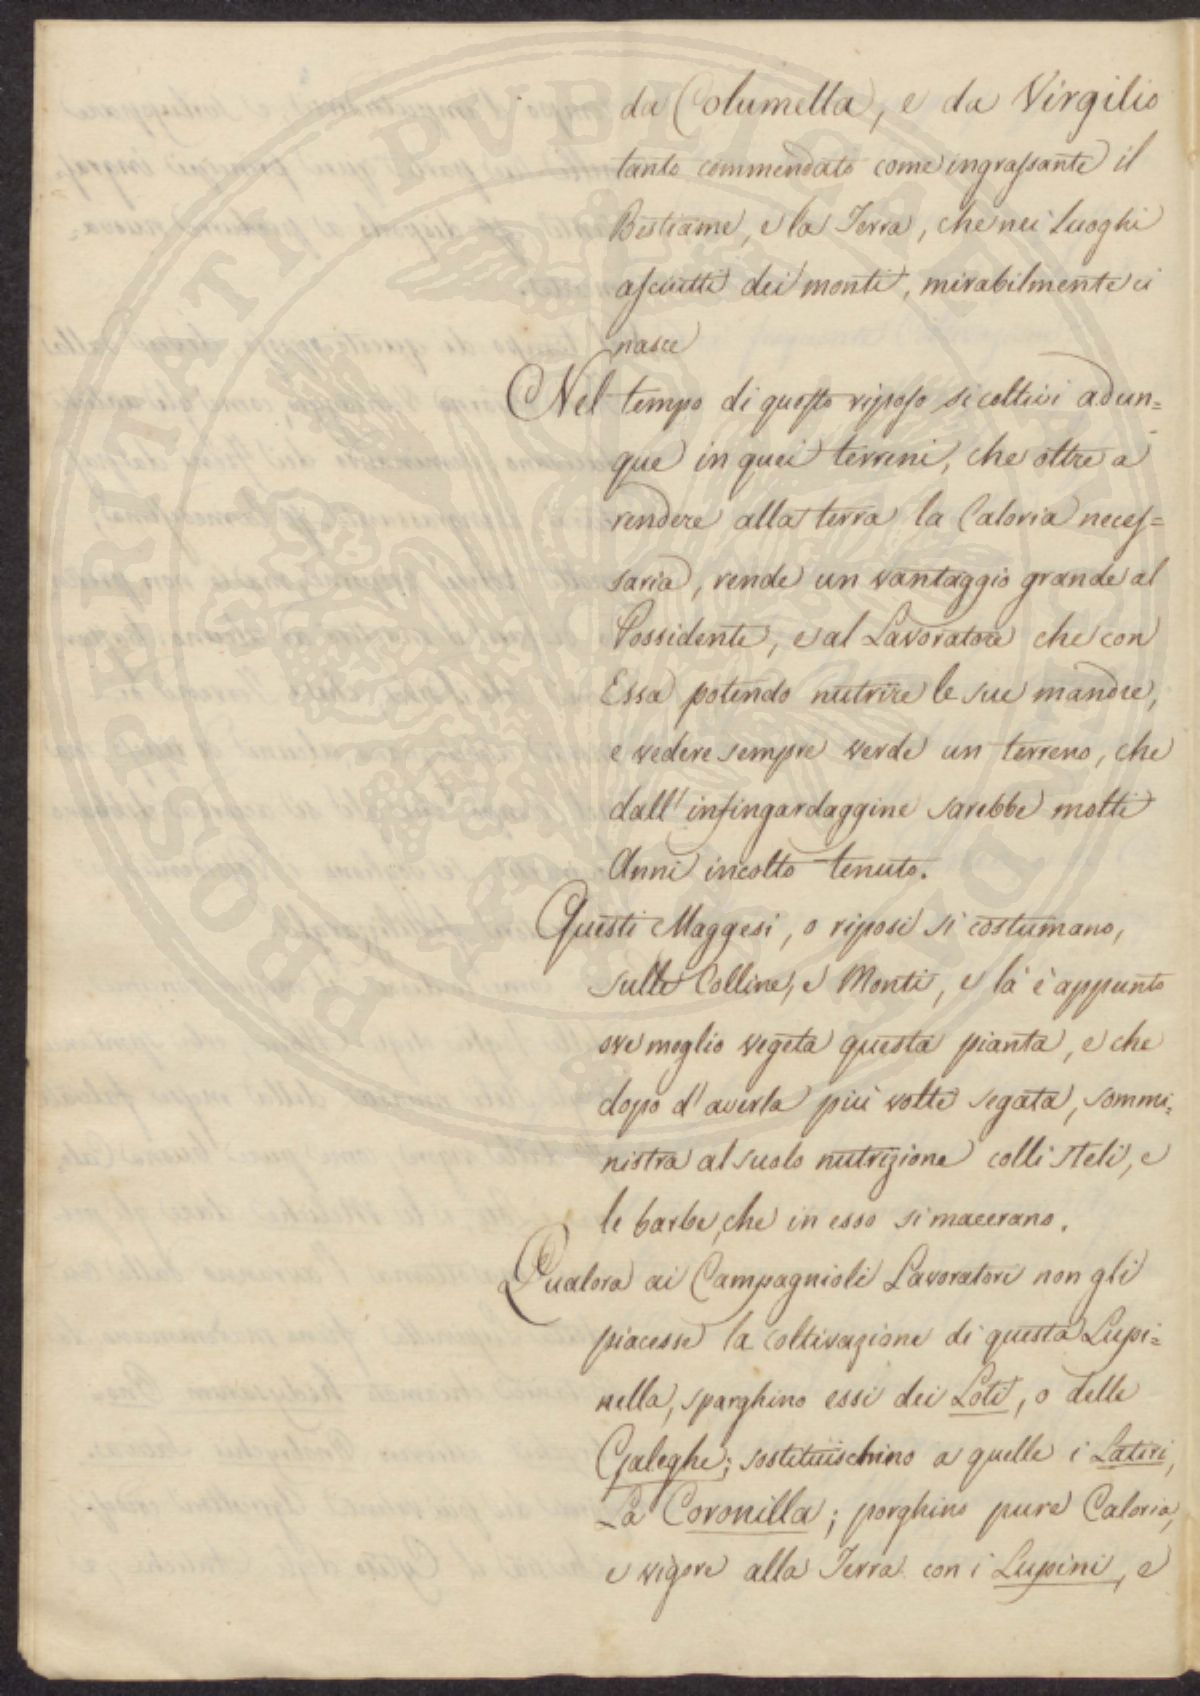 da Columella, e da Virgilio
tanto commendato come ingraſsante il
Bestiame, e la Terra, che nei luoghi
aſciutti dei monti, mirabilmente ci
nasce
Nel tempo di queſto ripoſo si coltivi adun=
que in quei terreni, che oltre a
rendere alla terra la Caloria neceſ=
saria, rende un vantaggio grande al
Possidente, e al Lavoratore che con
Essa potendo nutrire le sue mandre,
e vedere sempre verde un terreno, che
dall' infingardaggine sarebbe molti
Anni incolto tenuto.
Questi Maggesi, o riposi si costumano,
sulle Colline, e Monti, e là è appunto
ove meglio vegeta questa pianta, e che
dopo d' averla più volte segata, sommi=
nistra al suolo nutrizione colli steli, e
le barbe, che in esso si macerano.
Qualora ai Campagnioli Lavoratori non gli
piacesse la coltivazione di questa Lupi=
nella, sparghino essi dei Loti, o delle
Galeghe; sostituischino a quelle i Latiri,
La Coronilla; porghino pure Caloria,
e vigore alla Terra con i Lupini, e
PROSPERITATI PVBLICAE